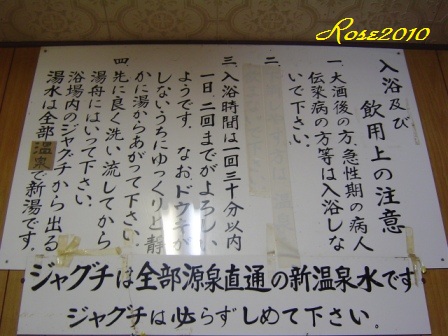 Rose2010
入浴及び
飲用上の注意
一、大酒後の方、急性期の病人
伝染病の方等は入浴しな
いで下さい。
二、
三、入浴時間は一回三十分以内
一日、二回までがよろしい
ようです。なおドウキが
しないうちにゆっくりと静
かに湯からあがって下さい。
四、先に良く洗い流してから
湯舟にはいって下さい。
浴場内のジャグチから出る
湯水は全部温泉で新湯です。
ジャグチは全部源泉直通の新温泉水です
ジャグチは必らずしめて下さい。